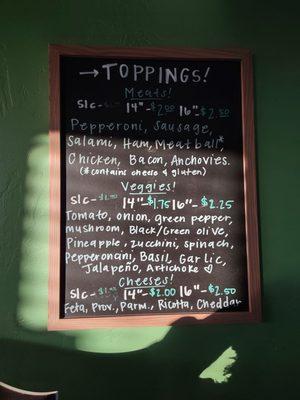 →TOPPINGS!
Meats!
Slc - 14"-$2.00 16"-$2.50
Pepperoni, Sausage,
Salami, Ham, Meatball,*
Chicken, Bacon, Anchovies.
(*contains cheese & gluten)
Veggies!
Slc - 14"-$1.75 16"-$2.25
Tomato, onion, green pepper,
mushroom, Black/Green olive,
Pineapple, zucchini, spinach,
Pepperoncini, Basil, Garlic,
Jalapeño, Artichoke
Cheeses!
Slc - 14"-$2.00 16"-$2.50
Feta, Prov., Parm., Ricotta, Cheddar